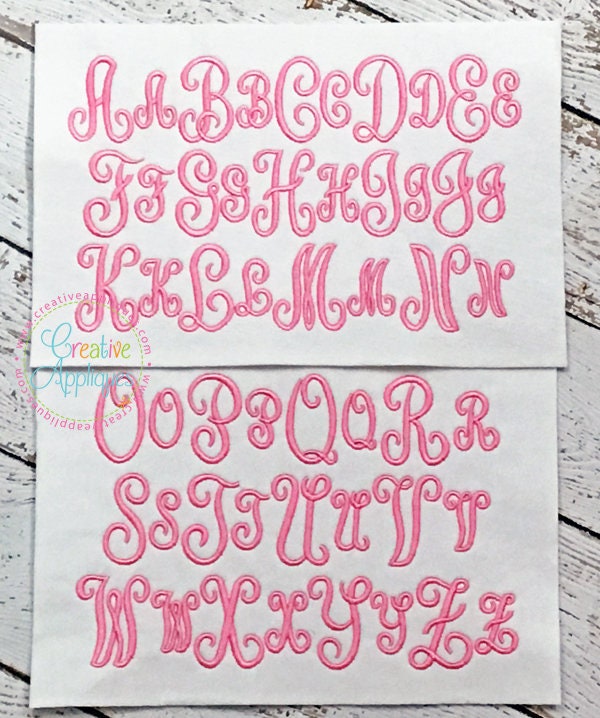 A A B B C C D D E E
F F G G H H I I J J
K K L L M M N N
www.creativeappliques.com
Creative
Appliques
www.creativeappliques.com
O O P P Q Q R R
S S T T U U V V
W W X X Y Y Z Z